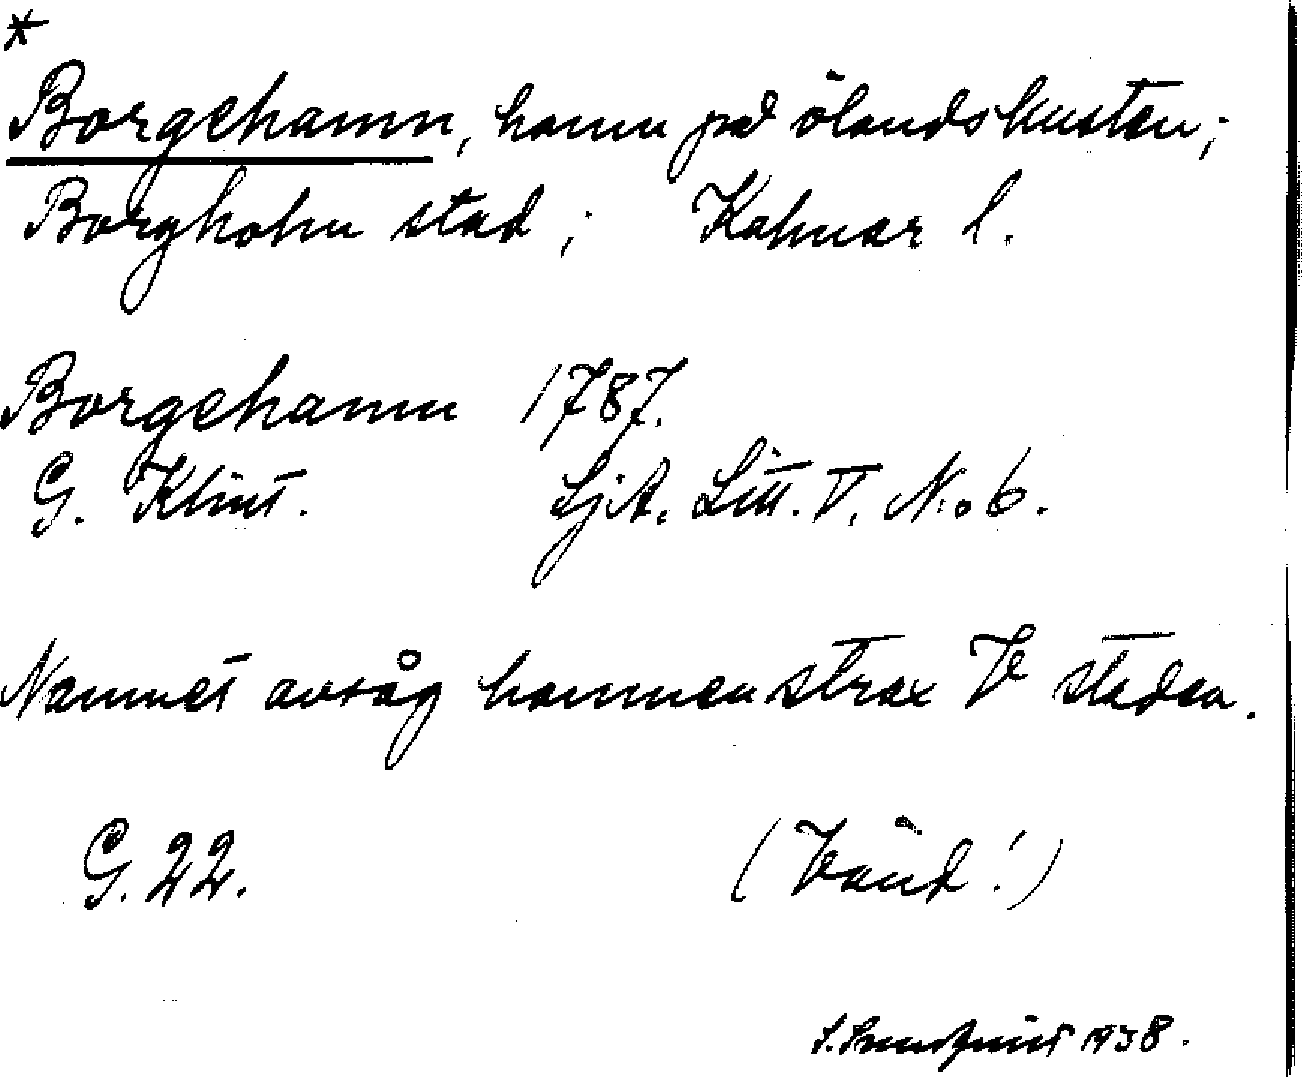 *
Borgehamn, hamn på ölandskusten;
Borgholm stad; Kalmar l.
Borgehamn 1787.
G. Klint. SjA. Litt. V. N:o 6.
Namnet avsåg hamnen strax V staden.
G. 22. (Vänd!)
1938.